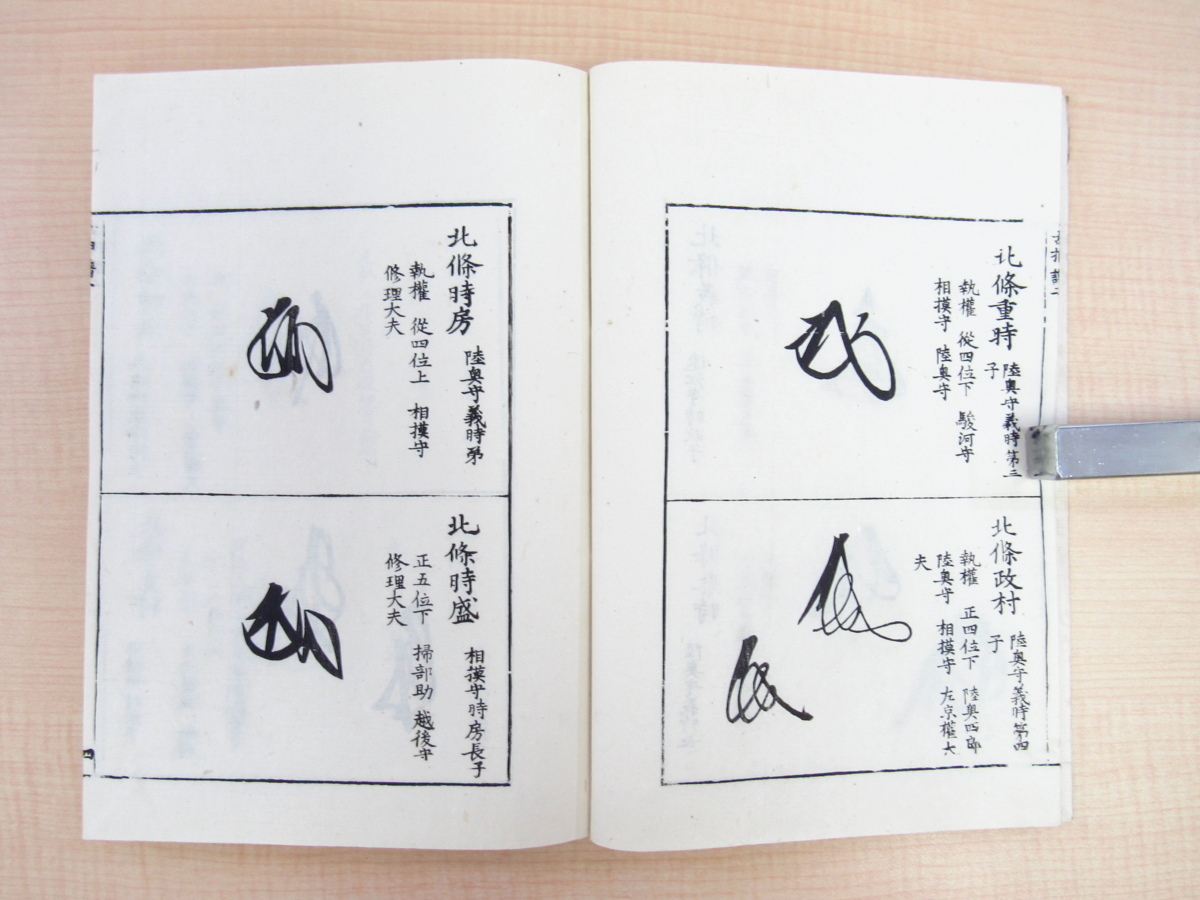 北條重時
陸奥守義時第三
子
執權 從四位下 駿河守
相摸守 陸奥守
北條政村
陸奥守義時第四
子
執權 正四位下 陸奥四郎
陸奥守 相摸守 左京權大
夫
北條時房
陸奥守義時弟
執權 從四位上 相摸守
修理大夫
北條時盛
相摸守時房長子
正五位下 掃部助 越後守
修理大夫
四